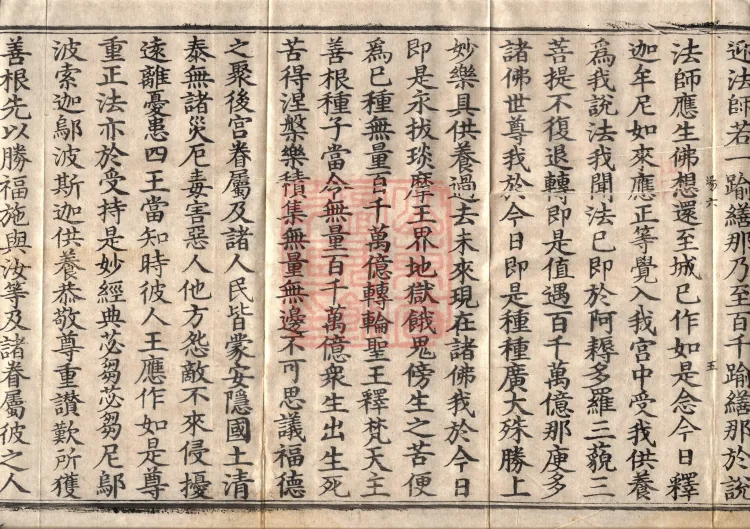 迎法師若一踰繕那乃至百千踰繕那於說
法師應生佛想還至城已作如是念今日釋
迦牟尼如來應正等覺入我宮中受我供養
為我說法我聞法已即於阿耨多羅三藐三
菩提不復退轉即是值遇百千萬億那庾多
諸佛世尊我於今日即是種種廣大殊勝上
妙樂具供養過去未來現在諸佛我於今日
即是永拔琰摩王界地獄餓鬼傍生之苦便
為已種無量百千萬億轉輪聖王釋梵天主
善根種子當今無量百千萬億衆生出生死
苦得涅槃樂積集無量無邊不可思議福德
之聚後宮眷屬及諸人民皆蒙安隱國土清
泰無諸災厄毒害惡人他方怨敵不來侵擾
遠離憂患四王當知時彼人王應作如是尊
重正法亦於受持是妙經典苾芻苾芻尼鄔
波索迦鄔波斯迦供養恭敬尊重讚歎所獲
善根先以勝福施與汝等及諸眷屬彼之人